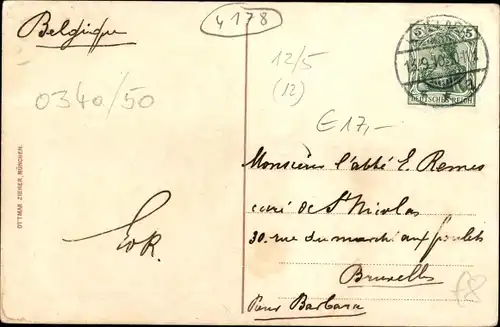 Belgique
4178
12/5
(12)
0340/50
€17,-
5 5
DEUTSCHES REICH
Monsieur l'abbé E. Remes
curé de St Nicolas
30 - rue du marché aux poulets
Bruxelles
Pour Barbara
OTTMAR ZIEHER, MÜNCHEN.